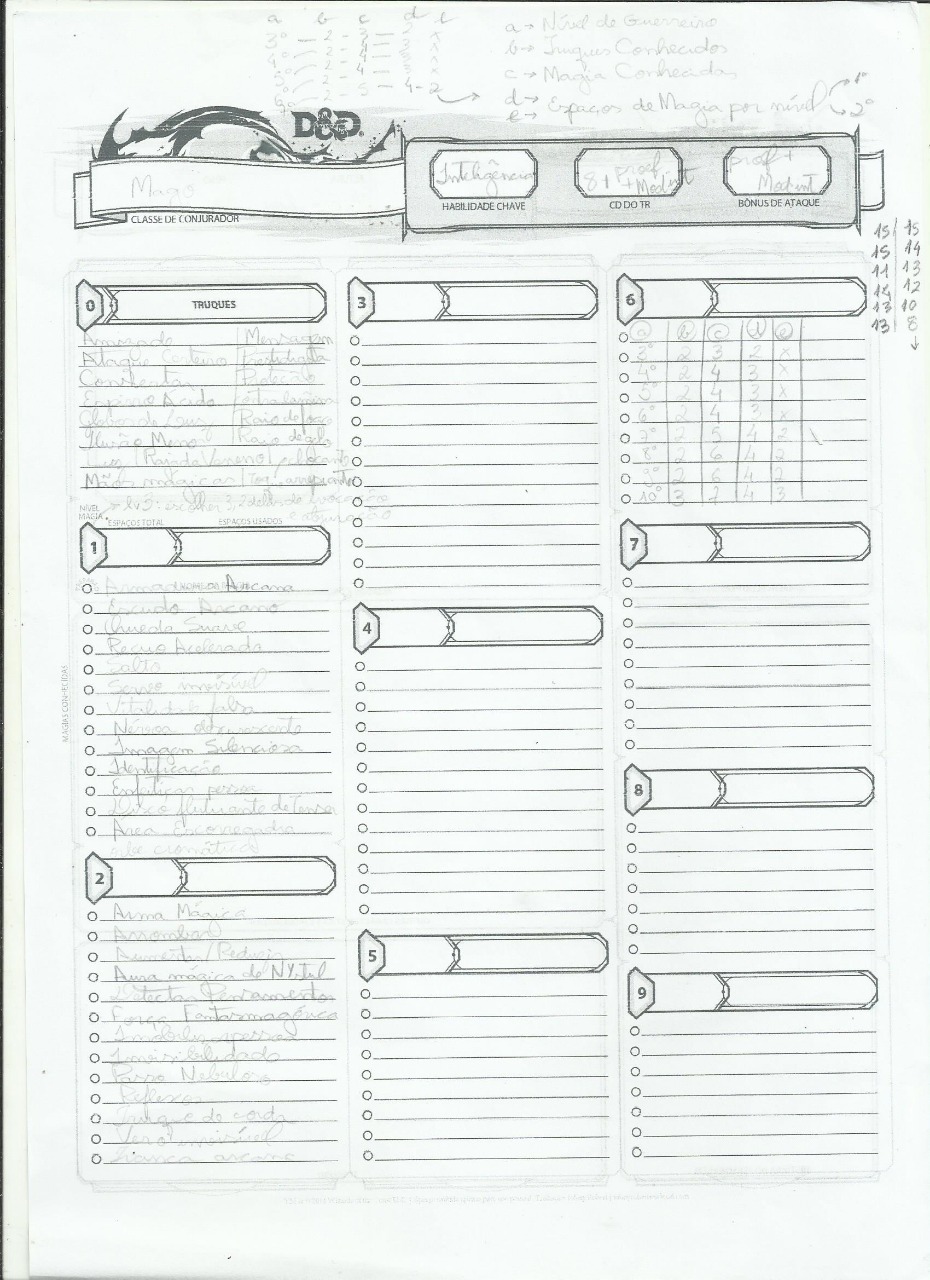 a b c d e
3º — 2 - 3 — 2 x
4º 2 - 4 — 3 x
5º 2 - 4 — 3 x
6º 2 - 4
2 - 5 — 4 - 2
a → Nível de Guerreiro
b → Truques Conhecidos
c → Magia Conhecidas
d → Espaços de Magia por nível → 1º
e → → 2º
D&D
Mago
CLASSE DE CONJURADOR
Inteligência
HABILIDADE CHAVE
8 + prof + Mod int
CD DO TR
prof + Mod int
BÔNUS DE ATAQUE
15 | 15
15 | 14
11 | 13
12 | 12
13 | 10
13 | 8
0 TRUQUES
Amizade | Mensagem
Ataque Certeiro | Prestidigitação
Consertar | Proteção
Espirro Ácido | contra lâminas
Globos de Luz | Raio de fogo
Ilusão Menor | Raio de gelo
Luz | Rajada Veneno
Mãos mágicas
lv3: escolher 3, 2 delas de
NÍVEL MAGIA
ESPAÇOS TOTAL
ESPAÇOS USADOS
1
Armadura Arcana
Escudo Arcano
Queda Suave
Recuo Acelerado
Salto
Servo invisível
Vitalidade falsa
Névoa obscurecente
Imagem Silenciosa
Identificação
Enfeitiçar pessoa
Disco flutuante de Tenser
Área Escorregadia
orbe cromática
MAGIAS CONHECIDAS
2
Arma Mágica
Arrombar
Aumentar/Reduzir
Aura mágica de Nystul
Detectar Pensamentos
Força Fantasmagórica
Imobilizar pessoa
Invisibilidade
Passo Nebuloso
Reflexos
Truque de corda
Ver o invisível
Tranca arcana
3
4
5
6
a b c d e
3º 2 3 2 x
4º 2 4 3 x
5º 2 4 3 x
6º 2 4 3 x
7º 2 5 4 2
8º 2 6 4 2
9º 2 6 4 2
10º 3 7 4 3
7
8
9